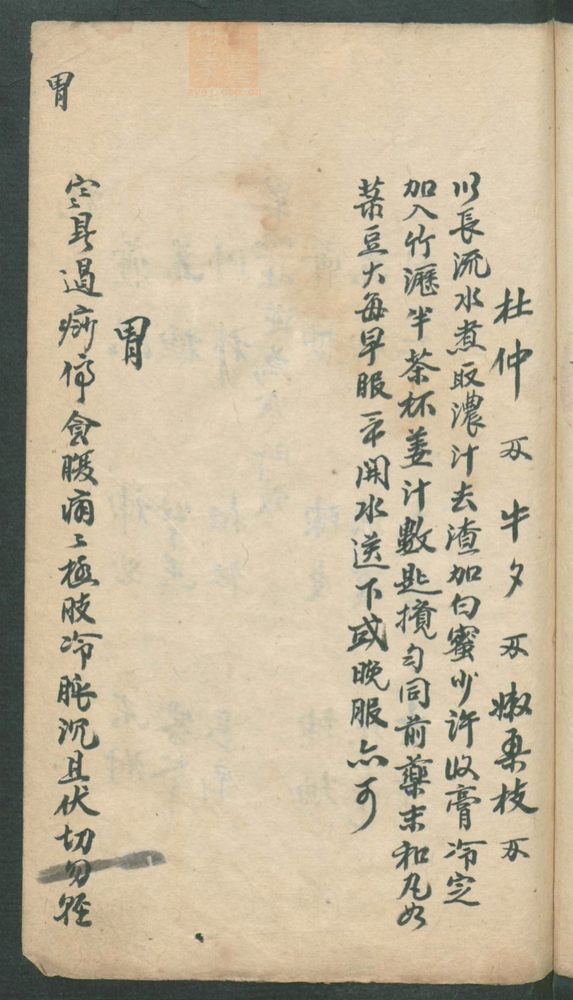 杜仲 牛夕 嫩桑枝
以長流水煮取濃汁去渣加白蜜少許收膏冷定
加入竹瀝半茶杯姜汁數匙攪勻同前藥末和丸如
菉豆大每早服 開水送下或晚服亦可
胃
過痧停食腹痛之極肢冷脉沉且伏切勿輕
胃